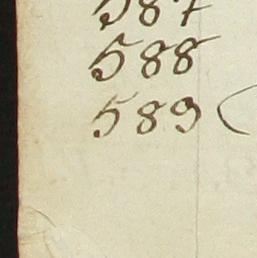 587
588
589